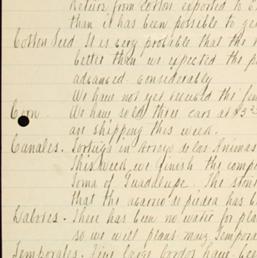 Return from cotton exported to
than it has been possible to ge
Cotton Seed. It is very probable that the
better than we expected the p
advanced considerably
We have not yet received the
Corn. We have sold three cars at $3
are shipping this week.
Canales. Tortugas in Arroyo de las Animas
this week, we finish the comp
Loma of Guadalupe. The
that the acarreo de piedra has b
Labores. There has been no water for pla
so we will plant many Tempora
Temporales. Five large bordos have bee